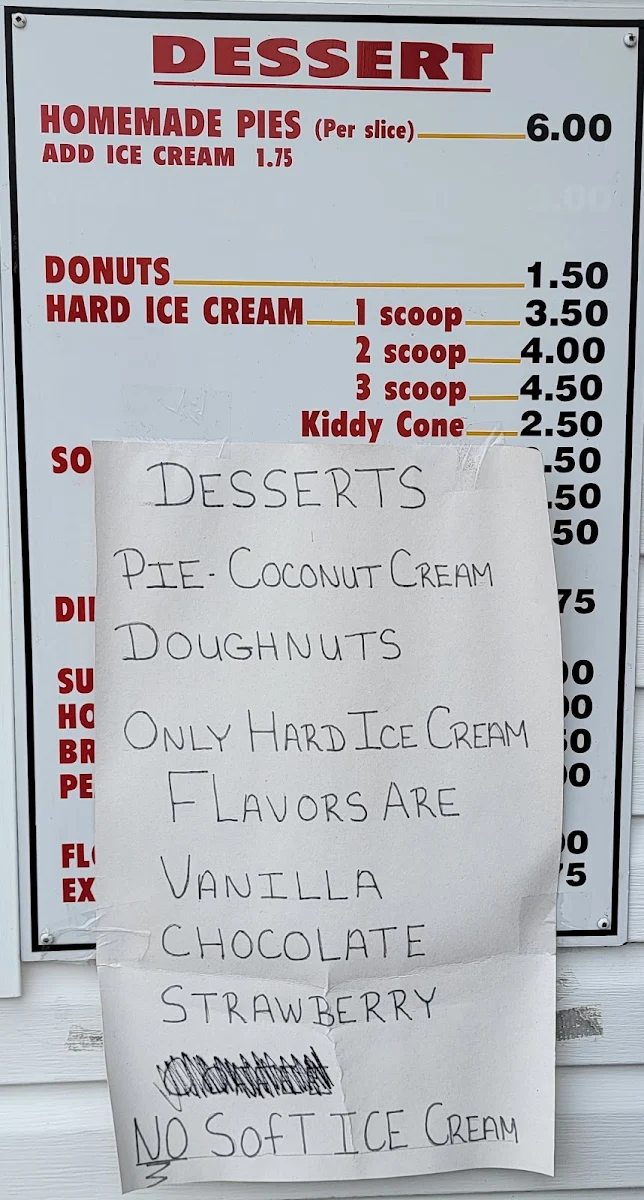 DESSERT
HOMEMADE PIES (Per slice) 6.00
ADD ICE CREAM 1.75
DONUTS 1.50
HARD ICE CREAM 1 scoop 3.50
2 scoop 4.00
3 scoop 4.50
Kiddy Cone 2.50
SO .50
.50
50
DESSERTS
PIE - COCONUT CREAM
DOUGHNUTS
ONLY HARD ICE CREAM
FLAVORS ARE
VANILLA
CHOCOLATE
STRAWBERRY
NO SOFT ICE CREAM